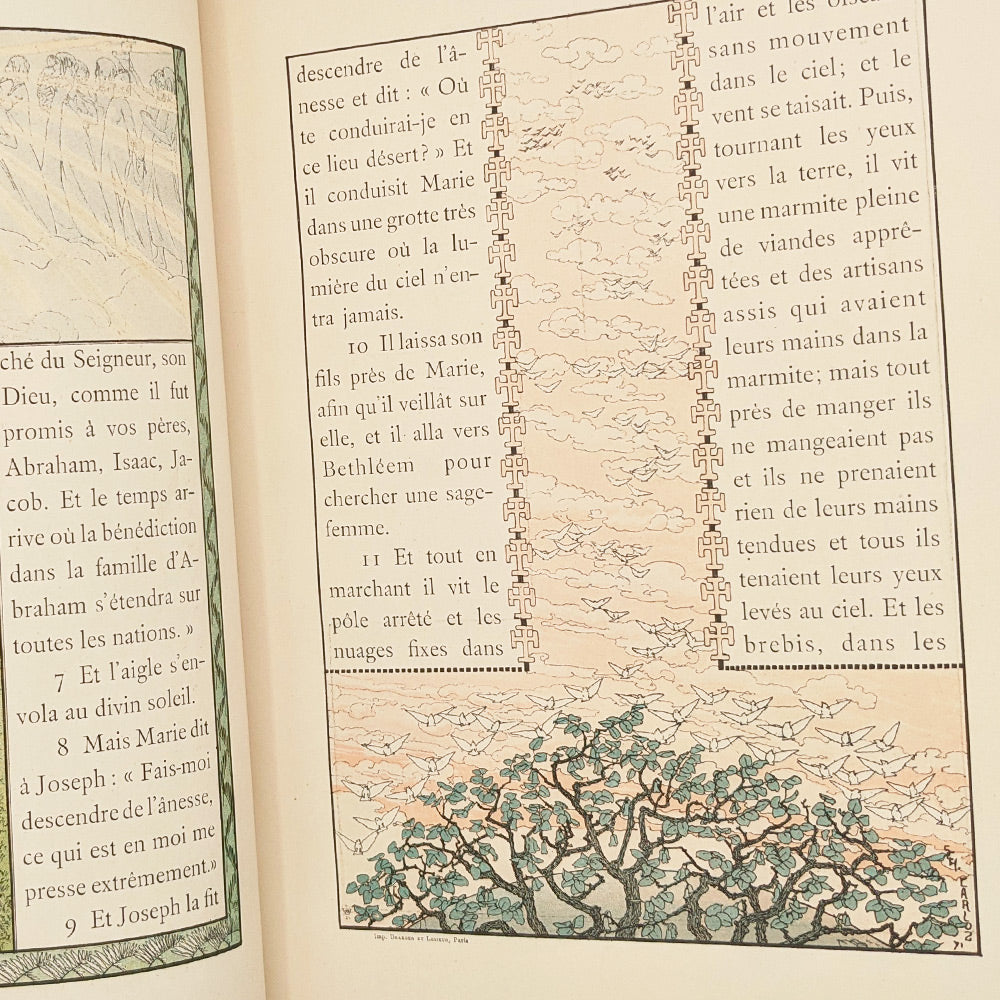 ché du Seigneur, son
Dieu, comme il fut
promis à vos pères,
Abraham, Isaac, Ja-
cob. Et le temps ar-
rive où la bénédiction
dans la famille d'A-
braham s'étendra sur
toutes les nations. »
7 Et l'aigle s'en-
vola au divin soleil.
8 Mais Marie dit
à Joseph : « Fais-moi
descendre de l'ânesse,
ce qui est en moi me
presse extrêmement.»
9 Et Joseph la fit
descendre de l'â-
nesse et dit : « Où
te conduirai-je en
ce lieu désert? » Et
il conduisit Marie
dans une grotte très
obscure où la lu-
mière du ciel n'en-
tra jamais.
10 Il laissa son
fils près de Marie,
afin qu'il veillât sur
elle, et il alla vers
Bethléem pour
chercher une sage-
femme.
11 Et tout en
marchant il vit le
pôle arrêté et les
nuages fixes dans
l'air et les
sans mouvement
dans le ciel; et le
vent se taisait. Puis,
tournant les yeux
vers la terre, il vit
une marmite pleine
de viandes apprê-
tées et des artisans
assis qui avaient
leurs mains dans la
marmite; mais tout
près de manger ils
ne mangeaient pas
et ils ne prenaient
rien de leurs mains
tendues et tous ils
tenaient leurs yeux
levés au ciel. Et les
brebis, dans les
Imp. Draeger et Lesieur, Paris